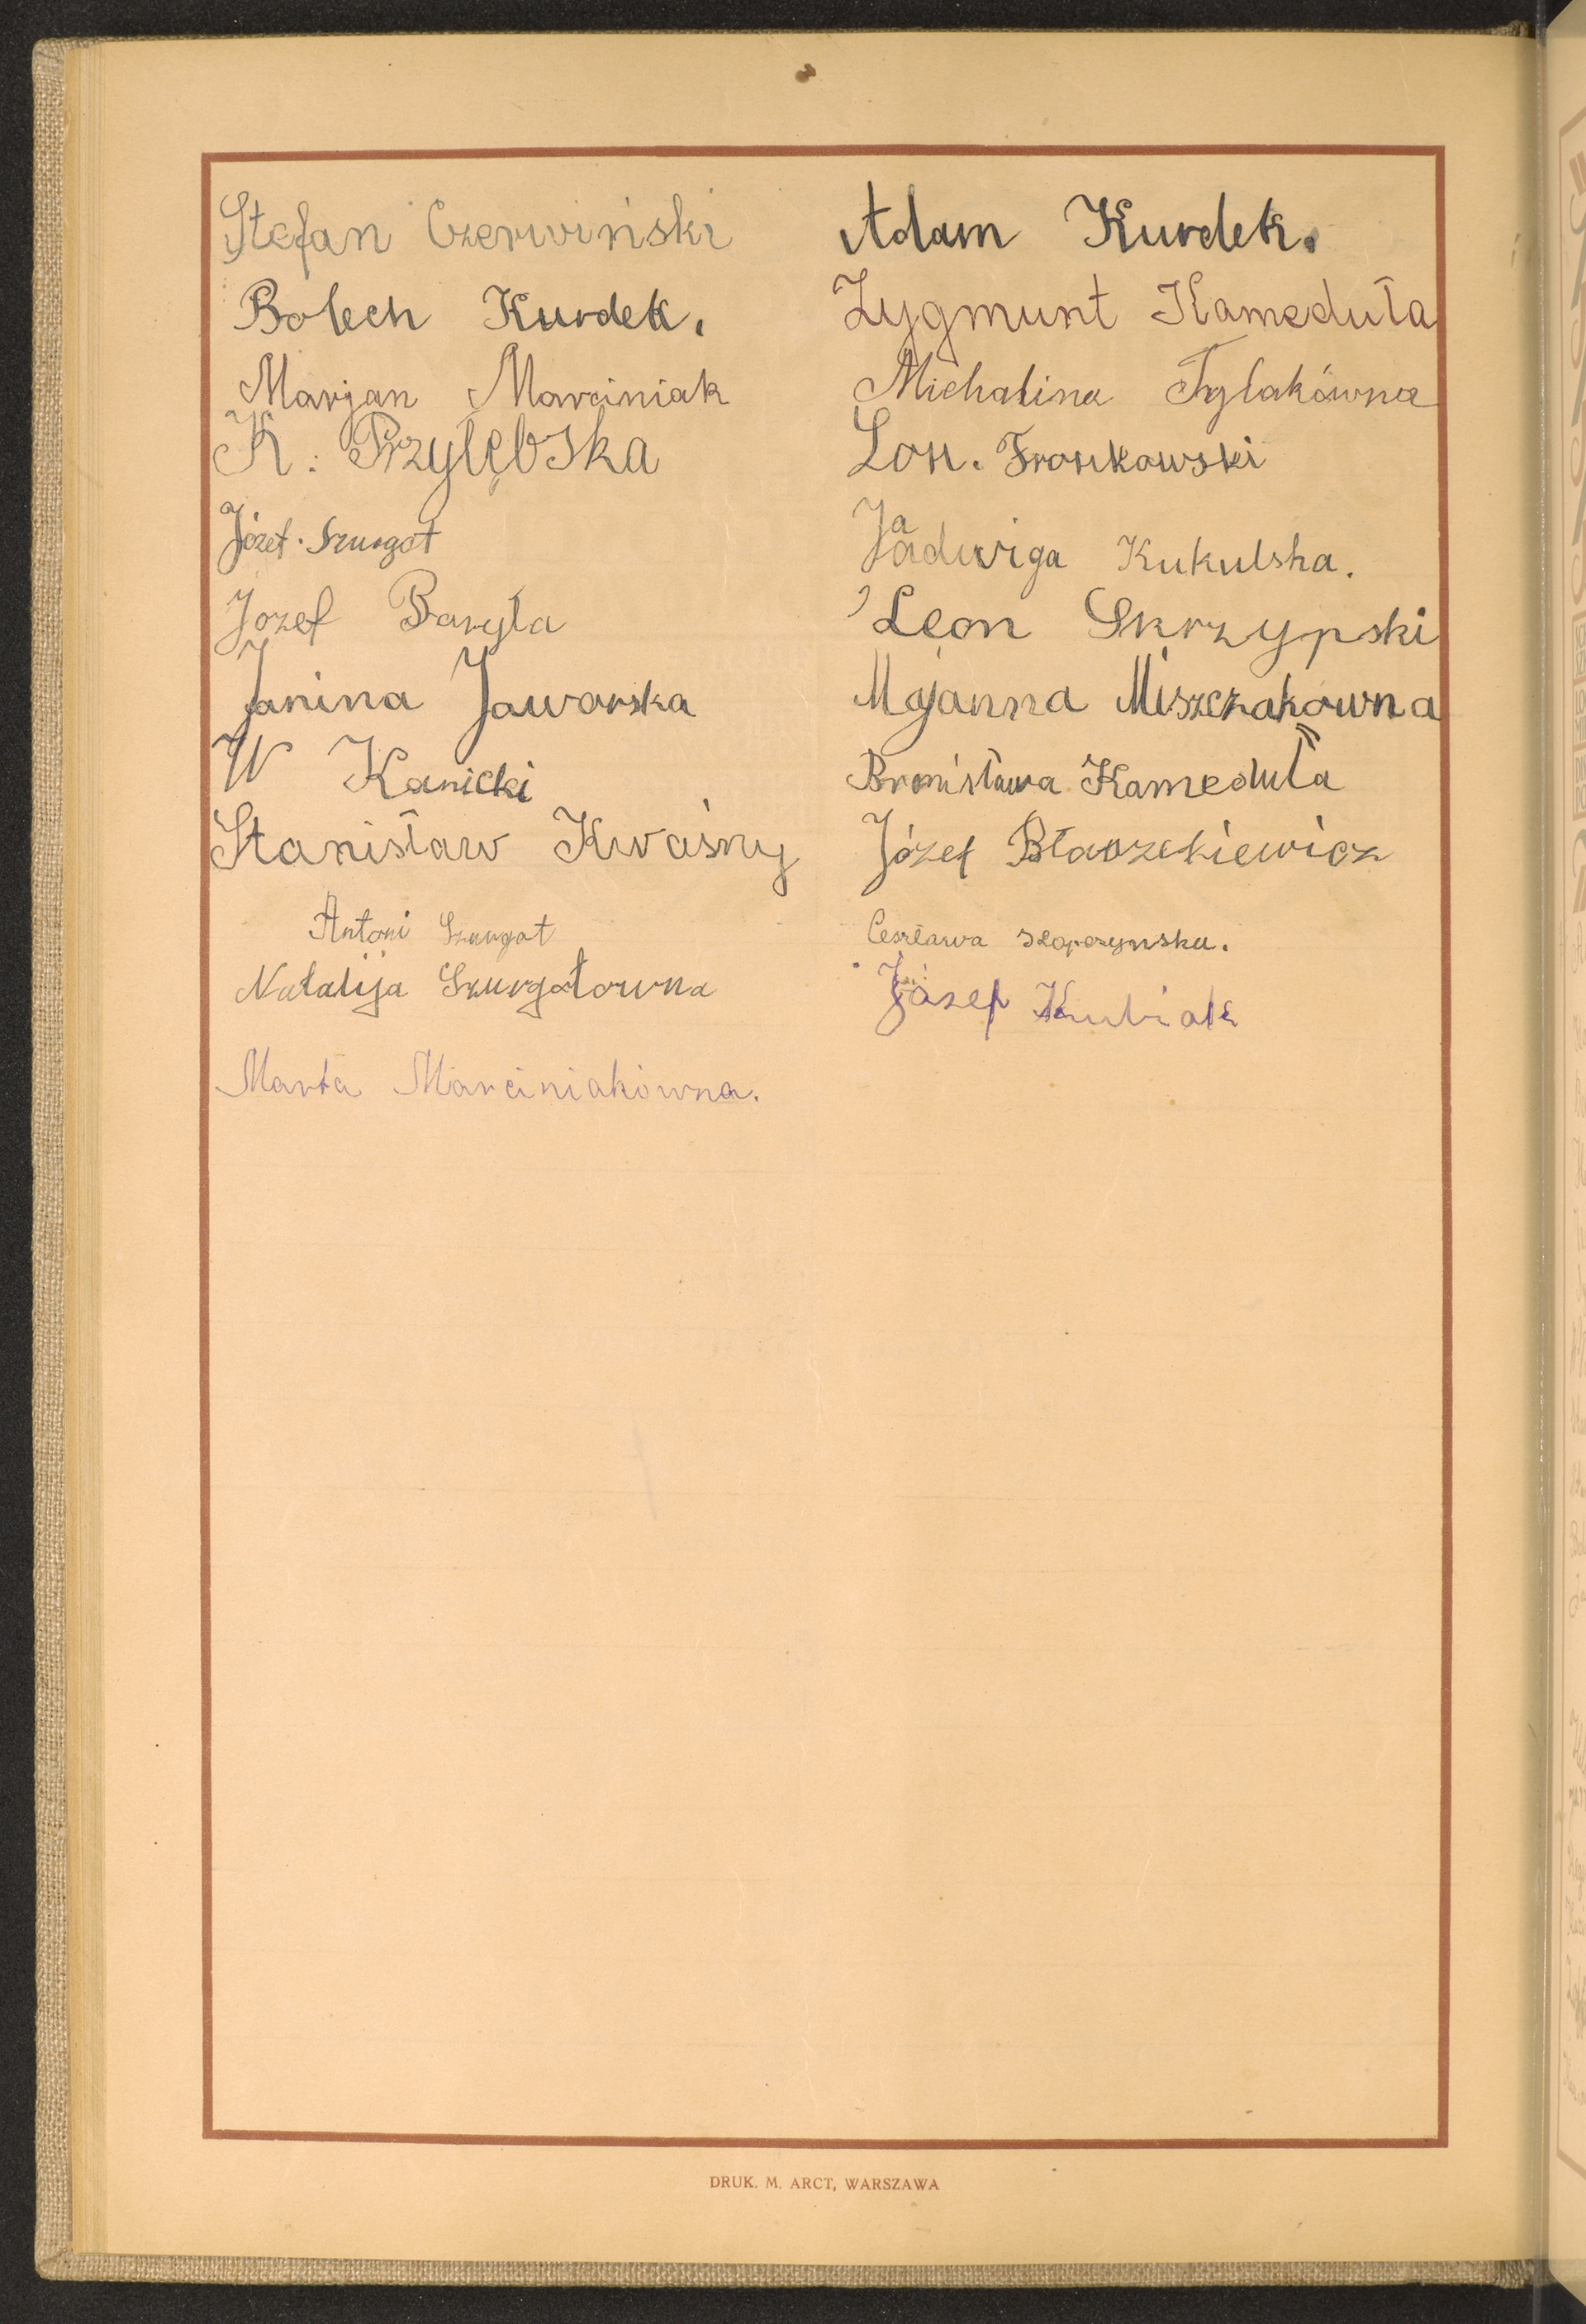 Stefan Czerwiński
Bolech Kurdek.
Marjan Marciniak
K. Przylębska
Józef Szurgot
Jozef Baryła
Janina Jaworska
W Kanicki
Stanisław Kwaśny
Antoni Szurgot
Natalija Szurgotowna
Marta Marciniakówna.
Adam Kurdek.
Zygmunt Kameduła
Michalina Tylakówna
Lon. Fronkowski
Jadwiga Kukulska.
Leon Skrzypski
Majanna Miszczakówna
Bronisława Kameduła
Józef Błaszekiewicz
Czesława
Józef Kubiak
DRUK. M. ARCT, WARSZAWA